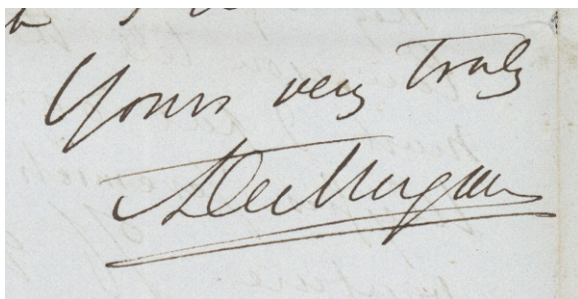 Yours very truly
ADeMorgan